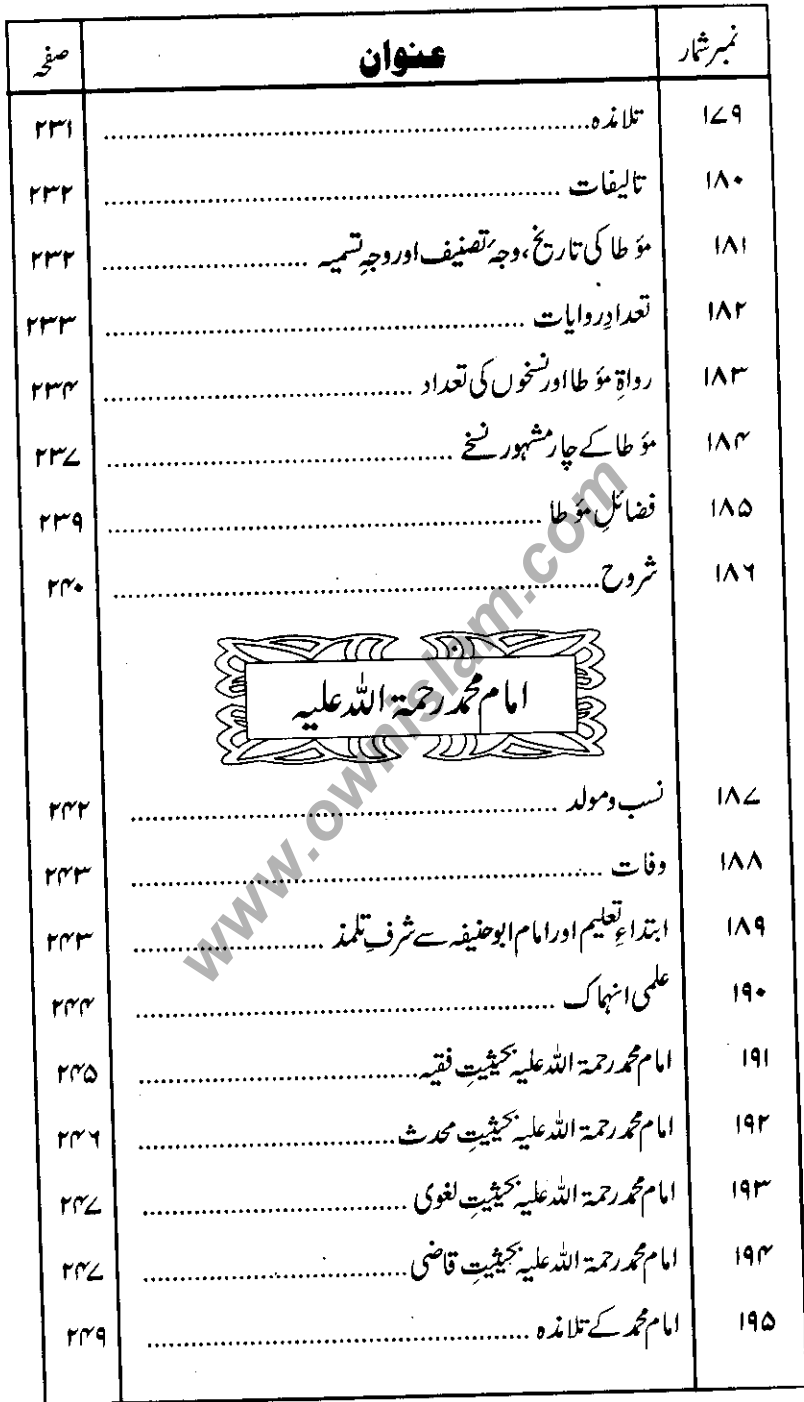 نمبر شمار عنوان صفحہ
۱۷۹ تلامذہ ........ ۲۳۱
۱۸۰ تالیفات ........ ۲۳۲
۱۸۱ مؤطا کی تاریخ، وجہٴ تصنیف اور وجہِ تسمیہ ........ ۲۳۲
۱۸۲ تعدادِ روایات ........ ۲۳۳
۱۸۳ رواۃِ مؤطا اور نسخوں کی تعداد ........ ۲۳۴
۱۸۴ مؤطا کے چار مشہور نسخے ........ ۲۳۷
۱۸۵ فضائلِ مؤطا ........ ۲۳۹
۱۸۶ شروح ........ ۲۴۰
امام محمد رحمۃ اللہ علیہ
۱۸۷ نسب و مولد ........ ۲۴۲
۱۸۸ وفات ........ ۲۴۳
۱۸۹ ابتداءِ تعلیم اور امام ابو حنیفہ سے شرفِ تلمذ ........ ۲۴۳
۱۹۰ علمی انہماک ........ ۲۴۴
۱۹۱ امام محمد رحمۃ اللہ علیہ بحیثیتِ فقیہ ........ ۲۴۵
۱۹۲ امام محمد رحمۃ اللہ علیہ بحیثیتِ محدث ........ ۲۴۶
۱۹۳ امام محمد رحمۃ اللہ علیہ بحیثیتِ لغوی ........ ۲۴۷
۱۹۴ امام محمد رحمۃ اللہ علیہ بحیثیتِ قاضی ........ ۲۴۷
۱۹۵ امام محمد کے تلامذہ ........ ۲۴۹
www.ownislam.com